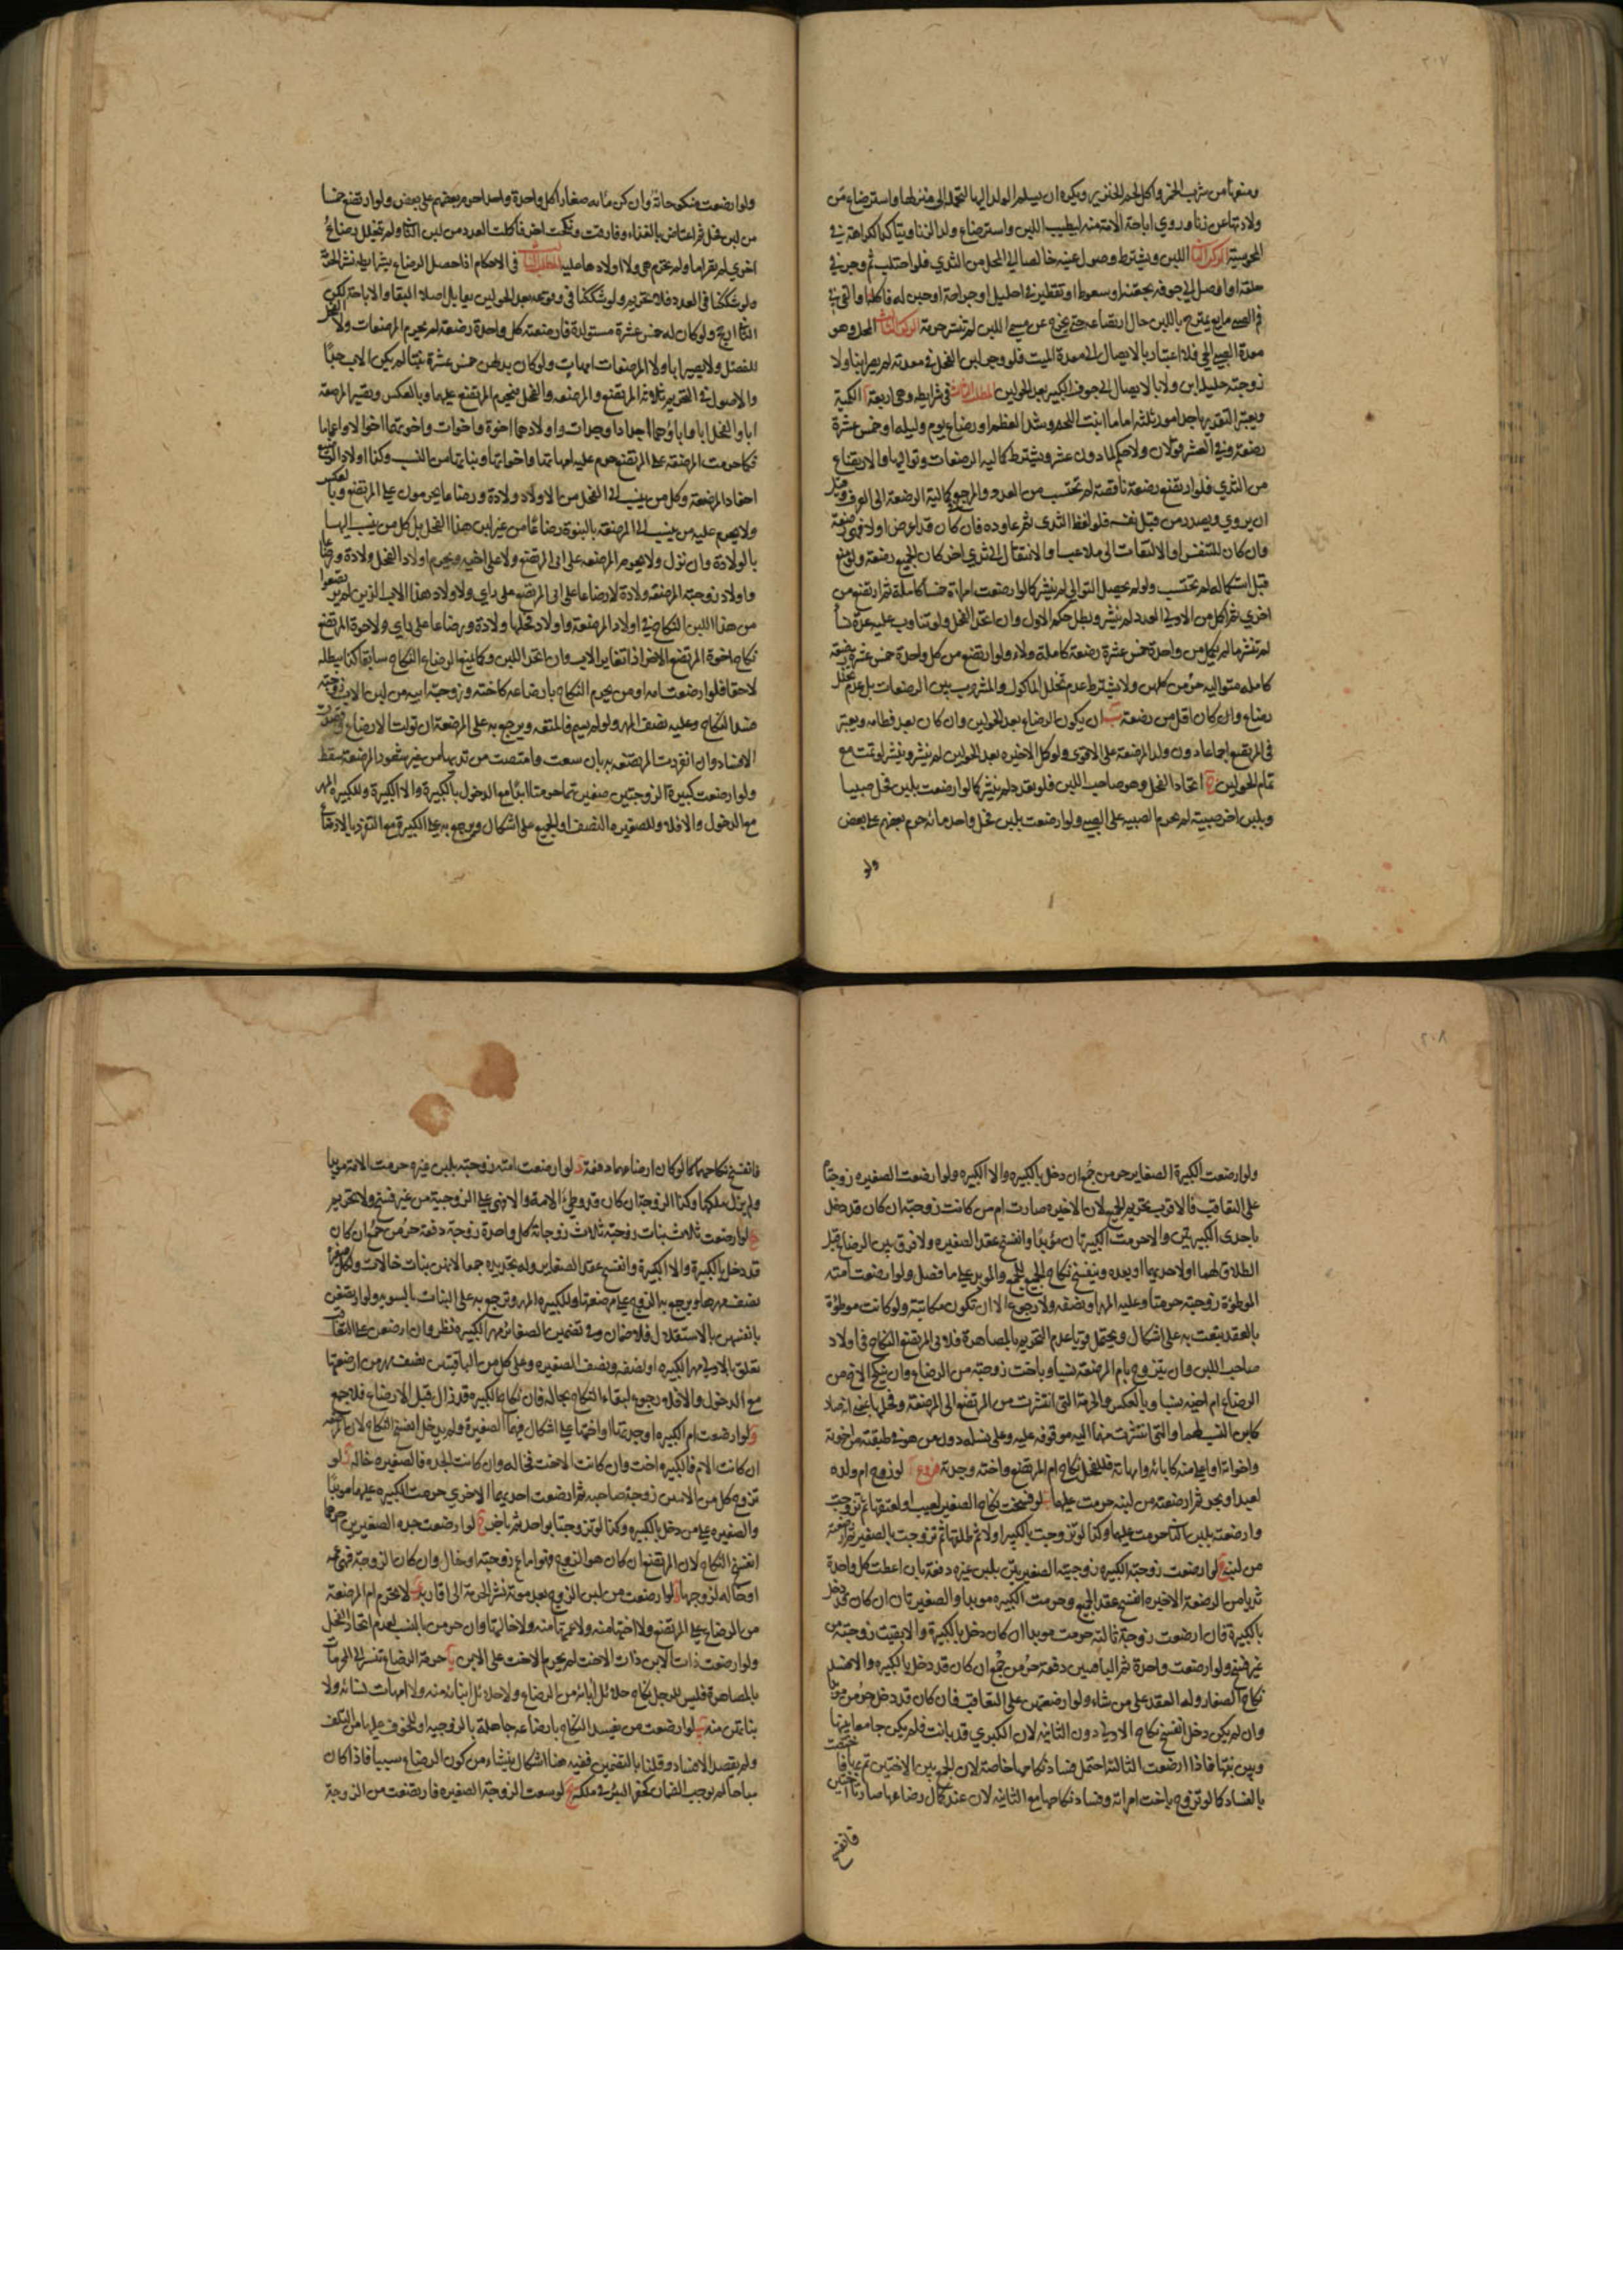 ٢٠٧
ومنعها من شرب الخمر واكل لحم الخنزير ويكره ان يسلم الولد اليها لتحمله الى منزلها واسترضاع من
ولادتها عن زنا وروي اباحة الامة منه ليطيب اللبن واسترضاع ولد الزنا ويتاكد الكراهة في
المجوسية الركن الثاني اللبن ويشترط وصول عينه خالصا الى المحل من الثدي فلو احتلب ثم وجر في
حلقه او اوصل الى جوفه بحقنة او سعوط او تقطير في احليل او جراحة او جبن له فاكله او القي في
فم الصبي مايع يمتزج باللبن حال ارتضاعه حتى يخرج عن مسمى اللبن لم تنشر حرمة الركن الثالث المحل وهو
معدة الصبي الحي فلا اعتبار بالايصال الى معدة الميت فلو وجر لبن الفحل في معدته لم يصر ابنا ولا
زوجته حليلة ابن ولا بالايصال الى جوف الكبير بعد الحولين المطلب الثاني في شرايطه وهي اربعة ا الكمية
ويعتبر التقدير باحد امور ثلثة اما ما انبت اللحم وشد العظم او رضاع يوم وليلة او خمس عشرة
رضعة وفي العشر قولان ولا حكم لما دون عشر ويشترط كمالية الرضعات وتواليها والارتضاع
من الثدي فلو ارتضع رضعة ناقصة لم تحتسب من العدد والمرجع في كمالية الرضعة الى العرف وقيل
ان يروي ويصدر من قبل نفسه فلو لفظ الثدي ثم عاوده فان كان قد اعرض اولا فهي رضعة
وان كان للتنفس او الالتفات الى ملاعب او الانتقال الى ثدي اخر كان الجميع رضعة ولو منع
قبل استكماله لم تحتسب ولو لم يحصل التوالي لم ينشر كما لو ارضعت امراة خمسا كاملة ثم ارتضع من
اخرى ثم اكمل من الاولى العدد لم ينشر وبطل حكم الاول وان اتحد الفحل ولو تناوب عليه عدة نسا
لم تنشر ما لم يكمل من واحدة خمس عشرة رضعة كاملة ولاء ولو ارتضع من كل واحدة خمس عشرة رضعة
كاملة متوالية حرمن كلهن ولا يشترط عدم تخلل الماكول والمشروب بين الرضعات بل عدم تخلل
رضاع وان كان اقل من رضعة ب ان يكون الرضاع بعد الحولين وان كان بعد فطامه ويعتبر
في المرتضع اجماعا دون ولد المرضعة على الاقوى ولو كمل الاخيرة بعد الحولين لم ينشر وينشر لو تمت مع
تمام الحولين ج اتحاد الفحل وهو صاحب اللبن فلو تعدد لم ينشر كما لو ارضعت بلبن فحل صبيا
وبلبن اخر صبية لم تحرم الصبية على الصبي ولو ارضعت بلبن فحل واحد مائة حرم بعضهم على بعض
ولو
ولو ارضعت منكوحاته وان كن مائة صغارا كل واحدة واحدا حرم بعضهم على بعض ولو ارتضع خمسا
من لبن فحل ثم اعتاض بالغذاء وفارقت ونكحت اخر فاكملت العدد من لبن الثاني ولم تتخلل رضاع
اخرى لم تصر اما ولم تحرم هي ولا اولادها عليه المطلب الثالث في الاحكام اذا حصل الرضاع بشرايطه نشر الحرمة
ولو شككنا في العدد فلا تحريم ولو شككنا في وقوعه بعد الحولين تقابل اصلا البقاء والاباحة لكن
الثاني ارجح ولو كان له خمس عشرة مستولدة فارضعته كل واحدة رضعة لم يحرم المرضعات ولا الفحل
للفصل ولا يصير ابا ولا المرضعات امهات ولو كان بدلهن خمس عشرة بنتا لم يكن الاب جدا
والاصول في التحريم ثلاثة المرتضع والمرضعة والفحل فيحرم المرتضع عليهما وبالعكس وتصير المرضعة
اما والفحل ابا واباؤهما اجدادا وجدات واولادهما اخوة واخوات واخوتهما اخوالا واعماما
فكما حرمت المرضعة على المرتضع حرم عليه امهاتها واخواتها وبناتها من النسب وكذا اولاد الرضيع
احفاد المرضعة وكل من ينسب الى الفحل من الاولاد ولادة ورضاعا يحرمون على المرتضع وبالعكس
ولا يحرم عليه من ينسب الى المرضعة بالبنوة رضاعا من غير لبن هذا الفحل بل كل من ينسب اليها
بالولادة وان نزل ولا يحرم المرضعة على ابي المرتضع ولا على اخيه ويحرم اولاد الفحل ولادة ورضاعا
واولاد زوجته المرضعة ولادة لا رضاعا على ابي المرتضع على راي ولاولاد هذا الاب الذين لم يرتضعوا
من هذا اللبن النكاح في اولاد المرضعة واولاد فحلها ولادة ورضاعا على راي ولاخوة المرتضع
نكاح اخوة المرتضع الاخر اذا تغاير الاب وان اتحد اللبن وكما يمنع الرضاع النكاح سابقا كذا يبطله
لاحقا فلو ارضعت امه او من يحرم النكاح بارضاعه كاخته وزوجة ابيه من لبن الاب زوجته
فسد النكاح وعليه نصف المهر ولو لم يسم فالمتعة ويرجع به على المرضعة ان تولت الارضاع وقصدت
الافساد وان انفردت المرتضعة به بان سعت وامتصت من ثديها من غير شعور المرضعة سقط
ولو ارضعت كبيرة الزوجتين صغيرتهما حرمتا ابدا مع الدخول بالكبيرة والا الكبيرة وللكبيرة المهر
مع الدخول والا فلا وللصغيرة النصف او الجميع على اشكال ويرجع به على الكبيرة مع التفرد بالارضاع
٢٠٨
ولو ارضعت الكبيرة الصغاير حرمن جمع ان دخل بالكبيرة والا الكبيرة ولو ارضعت الصغيرة زوجتا
على التعاقب فالاقرب تحريم الجميع لان الاخيرة صارت ام من كانت زوجته ان كان قد دخل
باحدى الكبيرتين والا حرمت الكبيرتان مؤبدا وانفسخ عقد الصغيرة ولا فرق بين الرضاع قبل
الطلاق لهما او لاحديهما او بعده وينفسخ نكاح الجميع للجمع والمؤبد على ما فصل ولو ارضعت امته
الموطؤة زوجته حرمتا وعليه المهر او نصفه ولا رجوع الا ان تكون مكاتبة ولو كانت موطؤة
بالعقد يتعت به على اشكال ويحتمل قويا عدم التحريم بالمصاهرة فلابي المرتضع النكاح في اولاد
صاحب اللبن وان يتزوج بام المرضعة نسبا وباخت زوجته من الرضاع وان ينكح الاخ من
الرضاع ام اخيه نسبا وبالعكس والحرمة التي انتشرت من المرتضع الى المرضعة وفحلها بمعنى انه صار
كابن النسب لهما والتي انتشرت منهما اليه موقوفة عليه وعلى نسله دون من هو في طبقته من اخوته
واخواته او اعلى منه كابائه وامهاته فللفحل نكاح ام المرتضع واخته وجدته فروع ا لو زوج ام ولده
لعبد او بحر ثم ارضعته من لبنه حرمت عليهما ب لو فسخت نكاح الصغير لعيب او لعتقها ثم تزوجت
وارضعته بلبن الثاني حرمت عليهما وكذا لو تزوجت بالكبير اولا ثم طلقها ثم تزوجت بالصغير ثم ارضعته
من لبنه ج لو ارضعت زوجته الكبيرة زوجتيه الصغيرتين بلبن غيره دفعة بان اعطت كل واحدة
ثديا من الرضعة الاخيرة انفسخ عقد الجميع وحرمت الكبيرة مؤبدا والصغيرتان ان كان قد دخل
بالكبيرة فان ارضعت زوجة ثالثة حرمت مؤبدا ان كان دخل بالكبيرة والا بقيت زوجته من
غير فسخ ولو ارضعت واحدة ثم الباقيتين دفعة حرمن جمع ان كان قد دخل بالكبيرة والا فسد
نكاح الصغار وله العقد على من شاء ولو ارضعتهن على التعاقب فان كان قد دخل حرمن مؤبدا
وان لم يكن دخل انفسخ نكاح الاولى دون الثانية لان الكبرى قد بانت فلم يكن جامعا بينها
وبين بنتها فاذا ارضعت الثالثة احتمل فساد نكاحها خاصة لان الجمع بين الاختين تم بها فاختصت
بالفساد كما لو تزوج باخت امراته وفساد نكاحها مع الثانية لان عند كمال رضاعها صارتا اختين
فانفسخ
فانفسخ نكاحهما كما لو كان ارضاعهما دفعة د لو ارضعت امته زوجته بلبن غيره حرمت الامة مؤبدا
ولم يزل ملكها وكذا الزوجة ان كان قد وطئ الامة والا بقي على الزوجية من غير فسخ ولا تحريم
ه لو ارضعت ثلاث بنات زوجته ثلاث زوجاته كل واحدة زوجة دفعة حرمن جمع ان كان
قد دخل بالكبيرة والا الكبيرة وانفسخ عقد الصغاير وله تجديده جمعا لانهن بنات خالات ولكل صغيرة
نصف مهرها ويرجع به الزوج على مرضعتها وللكبيرة المهر ويرجع به على البنات بالسوية ولو ارتضعن
بانفسهن بالاستقلال فلا ضمان وفي تضمين الصغار مهر الكبيرة نظر وان ارضعن على التعاقب
تعلق بالاولى مهر الكبيرة او نصفه ونصف الصغيرة وعلى كل من الباقيتين نصف مهر من ارضعتها
مع الدخول والا فلا رجوع لبقاء النكاح بحاله فان نكاح الكبيرة قد زال قبل الارضاع فلا جمع
و لو ارضعت ام الكبيرة او جدتها او اختها على اشكال فيهما الصغيرة ولم يدخل انفسخ النكاح لان المرضعة
ان كانت الام فالكبيرة اخت وان كانت الاخت فخالة وان كانت الجدة فالصغيرة خالة ز لو
تزوج كل من الاثنين زوجة صاحبه ثم ارضعت احديهما الاخرى حرمت الكبيرة عليهما مؤبدا
والصغيرة على من دخل بالكبيرة وكذا لو تزوجتا بواحد ثم باخر ح لو ارضعت جدة الصغيرين احدهما
انفسخ النكاح لان المرتضع ان كان هو الزوج فهو اما عم زوجته او خال وان كان الزوجة فهي عمة
او خالة لزوجها ط لو ارضعت من لبن الزوج بعد موته نشر الحرمة الى اقاربه ي لا تحرم ام المرضعة
من الرضاع على المرتضع ولا اختها منه ولا عمتها منه ولا خالتها وان حرمن بالنسب لعدم اتحاد الفحل
ولو ارضعت ذات الابن ذات الاخت لم تحرم الاخت على الابن يا حرمة الرضاع تنشر الى المحرمات
بالمصاهرة فليس للرجل نكاح حلائل ابائه من الرضاع ولا حلائل ابنائه منه ولا امهات نسائه ولا
بناتهن منه يب لو ارضعت من يفسد النكاح بارضاعه جاهلة بالزوجية او للخوف عليها من التلف
ولم يقصد الافساد وقلنا بالتضمين ففيه هنا اشكال ينشاء من كون الرضاع سببا فاذا كان
مباحا لم يوجب الضمان كحفر البئر في ملكه يج لو سعت الزوجة الصغيرة فارتضعت من الزوجة